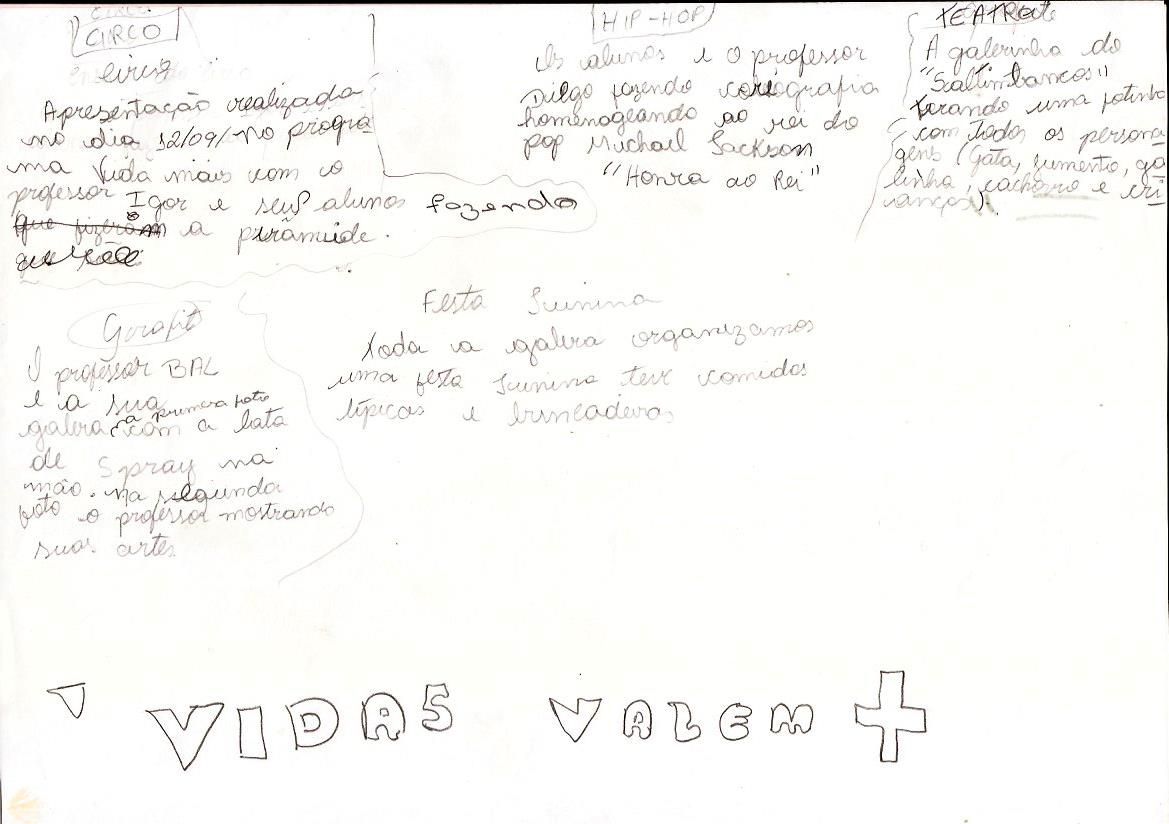 CIRCO
circo
Apresentação realizada
no dia 12/09/ no progra
ma Vida mais com o
professor Igor e seus alunos fazendo
que fizeram a pirâmide.
HIP-HOP
Os alunos e o professor
Diego fazendo coriografia
homenageando ao rei do
pop Michael Jackson
"Honra ao Rei"
TEATRO
A galerinha do
"Scaltimbancos"
tirando uma fotinha
com todos os persona
gens (Gata, jumento, ga
linha, cachorro e cri
anças).
Girafit
O professor BAL
e a sua
galera na primera foto com a lata
de Spray na
mão. na segunda
foto o professor mostrando
suas artes
Festa Junina
Toda a galera organizamos
uma festa Junina teve comidas
típicas e brincadeiras
V VIDAS VALEM +